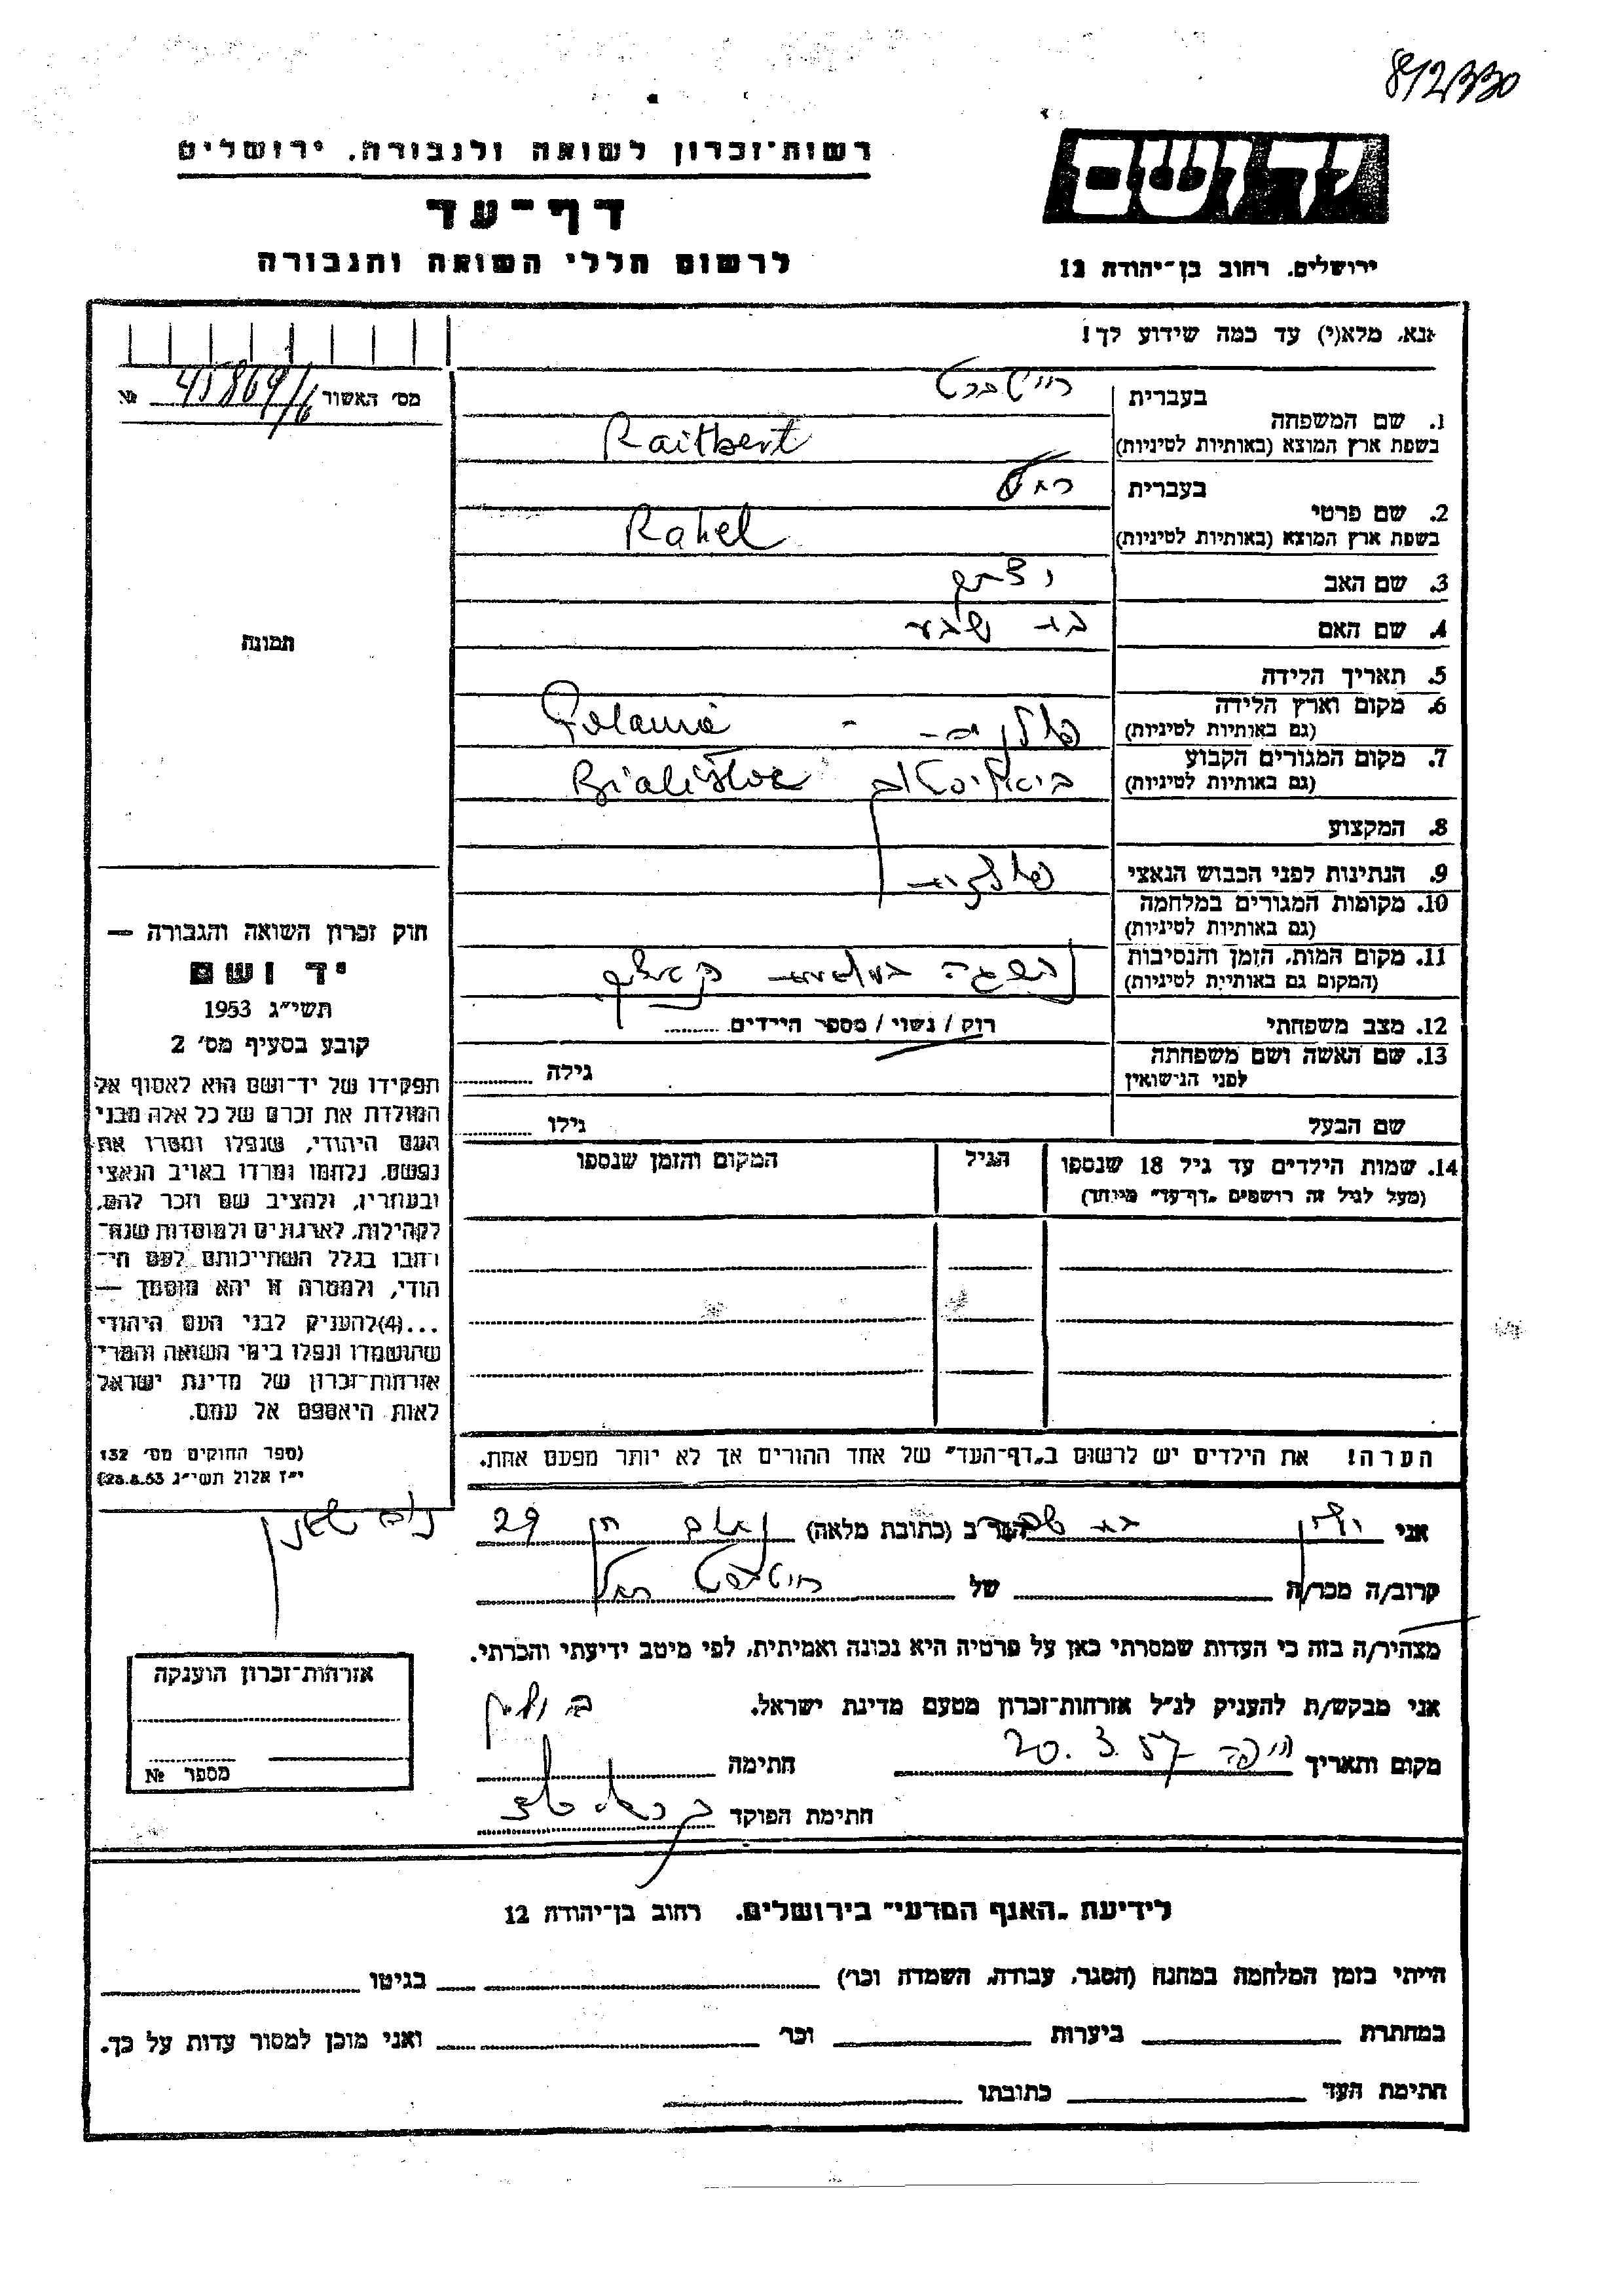 812330
יד ושם
רשות־זכרון לשואה ולגבורה. ירושלים
דף־עד
לרשום חללי השואה והגבורה
ירושלים. רחוב בן־יהודה 12
אנא, מלא(י) עד כמה שידוע לך!
מס׳ האשור 45869/16 №
בעברית רייטברט
1. שם המשפחה
בשפת ארץ המוצא (באותיות לטיניות) Raitbert
בעברית רחל
2. שם פרטי
בשפת ארץ המוצא (באותיות לטיניות) Rahel
3. שם האב יצחק
4. שם האם בת שבע
תמונה
5. תאריך הלידה
6. מקום וארץ הלידה
(גם באותיות לטיניות) פולניה - Polania
7. מקום המגורים הקבוע
(גם באותיות לטיניות) ביאליסטוק Bialistoc
8. המקצוע
9. הנתינות לפני הכבוש הנאצי פולנית
10. מקומות המגורים במלחמה
(גם באותיות לטיניות)
11. מקום המות, הזמן והנסיבות
(המקום גם באותיית לטיניות)
12. מצב משפחתי רוק / נשוי / מספר הילדים
13. שם האשה ושם משפחתה
לפני הנישואין גילה
שם הבעל גילו
14. שמות הילדים עד גיל 18 שנספו הגיל המקום והזמן שנספו
(מעל לגיל זה רושמים „דף־עד״ מיוחד)
חוק זכרון השואה והגבורה —
יד ושם
תשי״ג 1953
קובע בסעיף מס׳ 2
תפקידו של יד־ושם הוא לאסוף אל
המולדת את זכרם של כל אלה מבני
העם היהודי, שנפלו ומסרו את
נפשם, נלחמו ומרדו באויב הנאצי
ובעוזריו, ולהציב שם וזכר להם,
לקהילות, לארגונים ולמוסדות שנח־
רבו בגלל השתייכותם לעם הי־
הודי, ולמטרה זו יהא מוסמך —
...(4)להעניק לבני העם היהודי
שהושמדו ונפלו בימי השואה והמרי
אזרחות־זכרון של מדינת ישראל
לאות היאספם אל עמם.
(ספר החוקים מס׳ 132
י״ז אלול תשי״ג 28.8.53)
הערה! את הילדים יש לרשום ב„דף־העד״ של אחד ההורים אך לא יותר מפעם אחת.
אני בת שבע הגר ב (כתובת מלאה) 29
קרוב/ה מכר/ה של רייטברט רחל
מצהיר/ה בזה כי העדות שמסרתי כאן על פרטיה היא נכונה ואמיתית, לפי מיטב ידיעתי והכרתי.
אני מבקש/ת להעניק לנ״ל אזרחות־זכרון מטעם מדינת ישראל.
מקום ותאריך חיפה 20.3.57 חתימה
חתימת הפוקד
אזרחות־זכרון הוענקה
מספר №
לידיעת „האגף המדעי״ בירושלים. רחוב בן־יהודה 12
הייתי בזמן המלחמה במחנה (הסגר, עבודה, השמדה וכר׳) בגיטו
במחתרת ביערות וכר׳ ואני מוכן למסור עדות על כך.
חתימת העד כתובתו